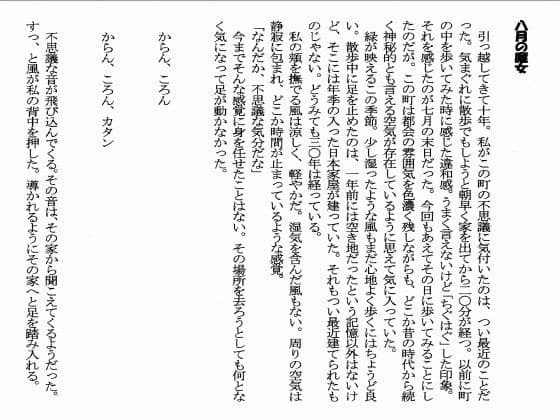 八月の魔女
　引っ越してきて十年。私がこの町の不思議に気付いたのは、つい最近のことだ
った。気まぐれに散歩でもしようと朝早く家を出てから二〇分が経つ。以前に町
の中を歩いてみた時に感じた違和感。うまく言えないけど「ちぐはぐ」した印象。
それを感じたのが七月の末日だった。今回もあえてその日に歩いてみることにし
たのだが、この町は都会の雰囲気を色濃く残しながらも、どこか昔の時代から続
く神秘的とも言える空気が存在しているように思えて気に入っていた。
　緑が映えるこの季節。少し湿ったような風もまだ心地よく歩くにはちょうど良
い。散歩中に足を止めたのは、一年前には空き地だったという記憶以外はないけ
ど、そこには年季の入った日本家屋が建っていた。それもつい最近建てられたも
のじゃない。どうみても三〇年は経っている。
　私の頬を撫でる風は涼しく、軽やかだ。湿気を含んだ風もない。周りの空気は
静寂に包まれ、どこか時間が止まっているような感覚。
「なんだか、不思議な気分だな」
　今までそんな感覚に身を任せたことはない。その場所を去ろうとしても何とな
く気になって足が動かなかった。
からん、ころん
からん、ころん、カタン
　不思議な音が飛び込んでくる。その音は、その家から聞こえてくるようだった。
すっ、と風が私の背中を押した。導かれるようにその家へと足を踏み入れる。